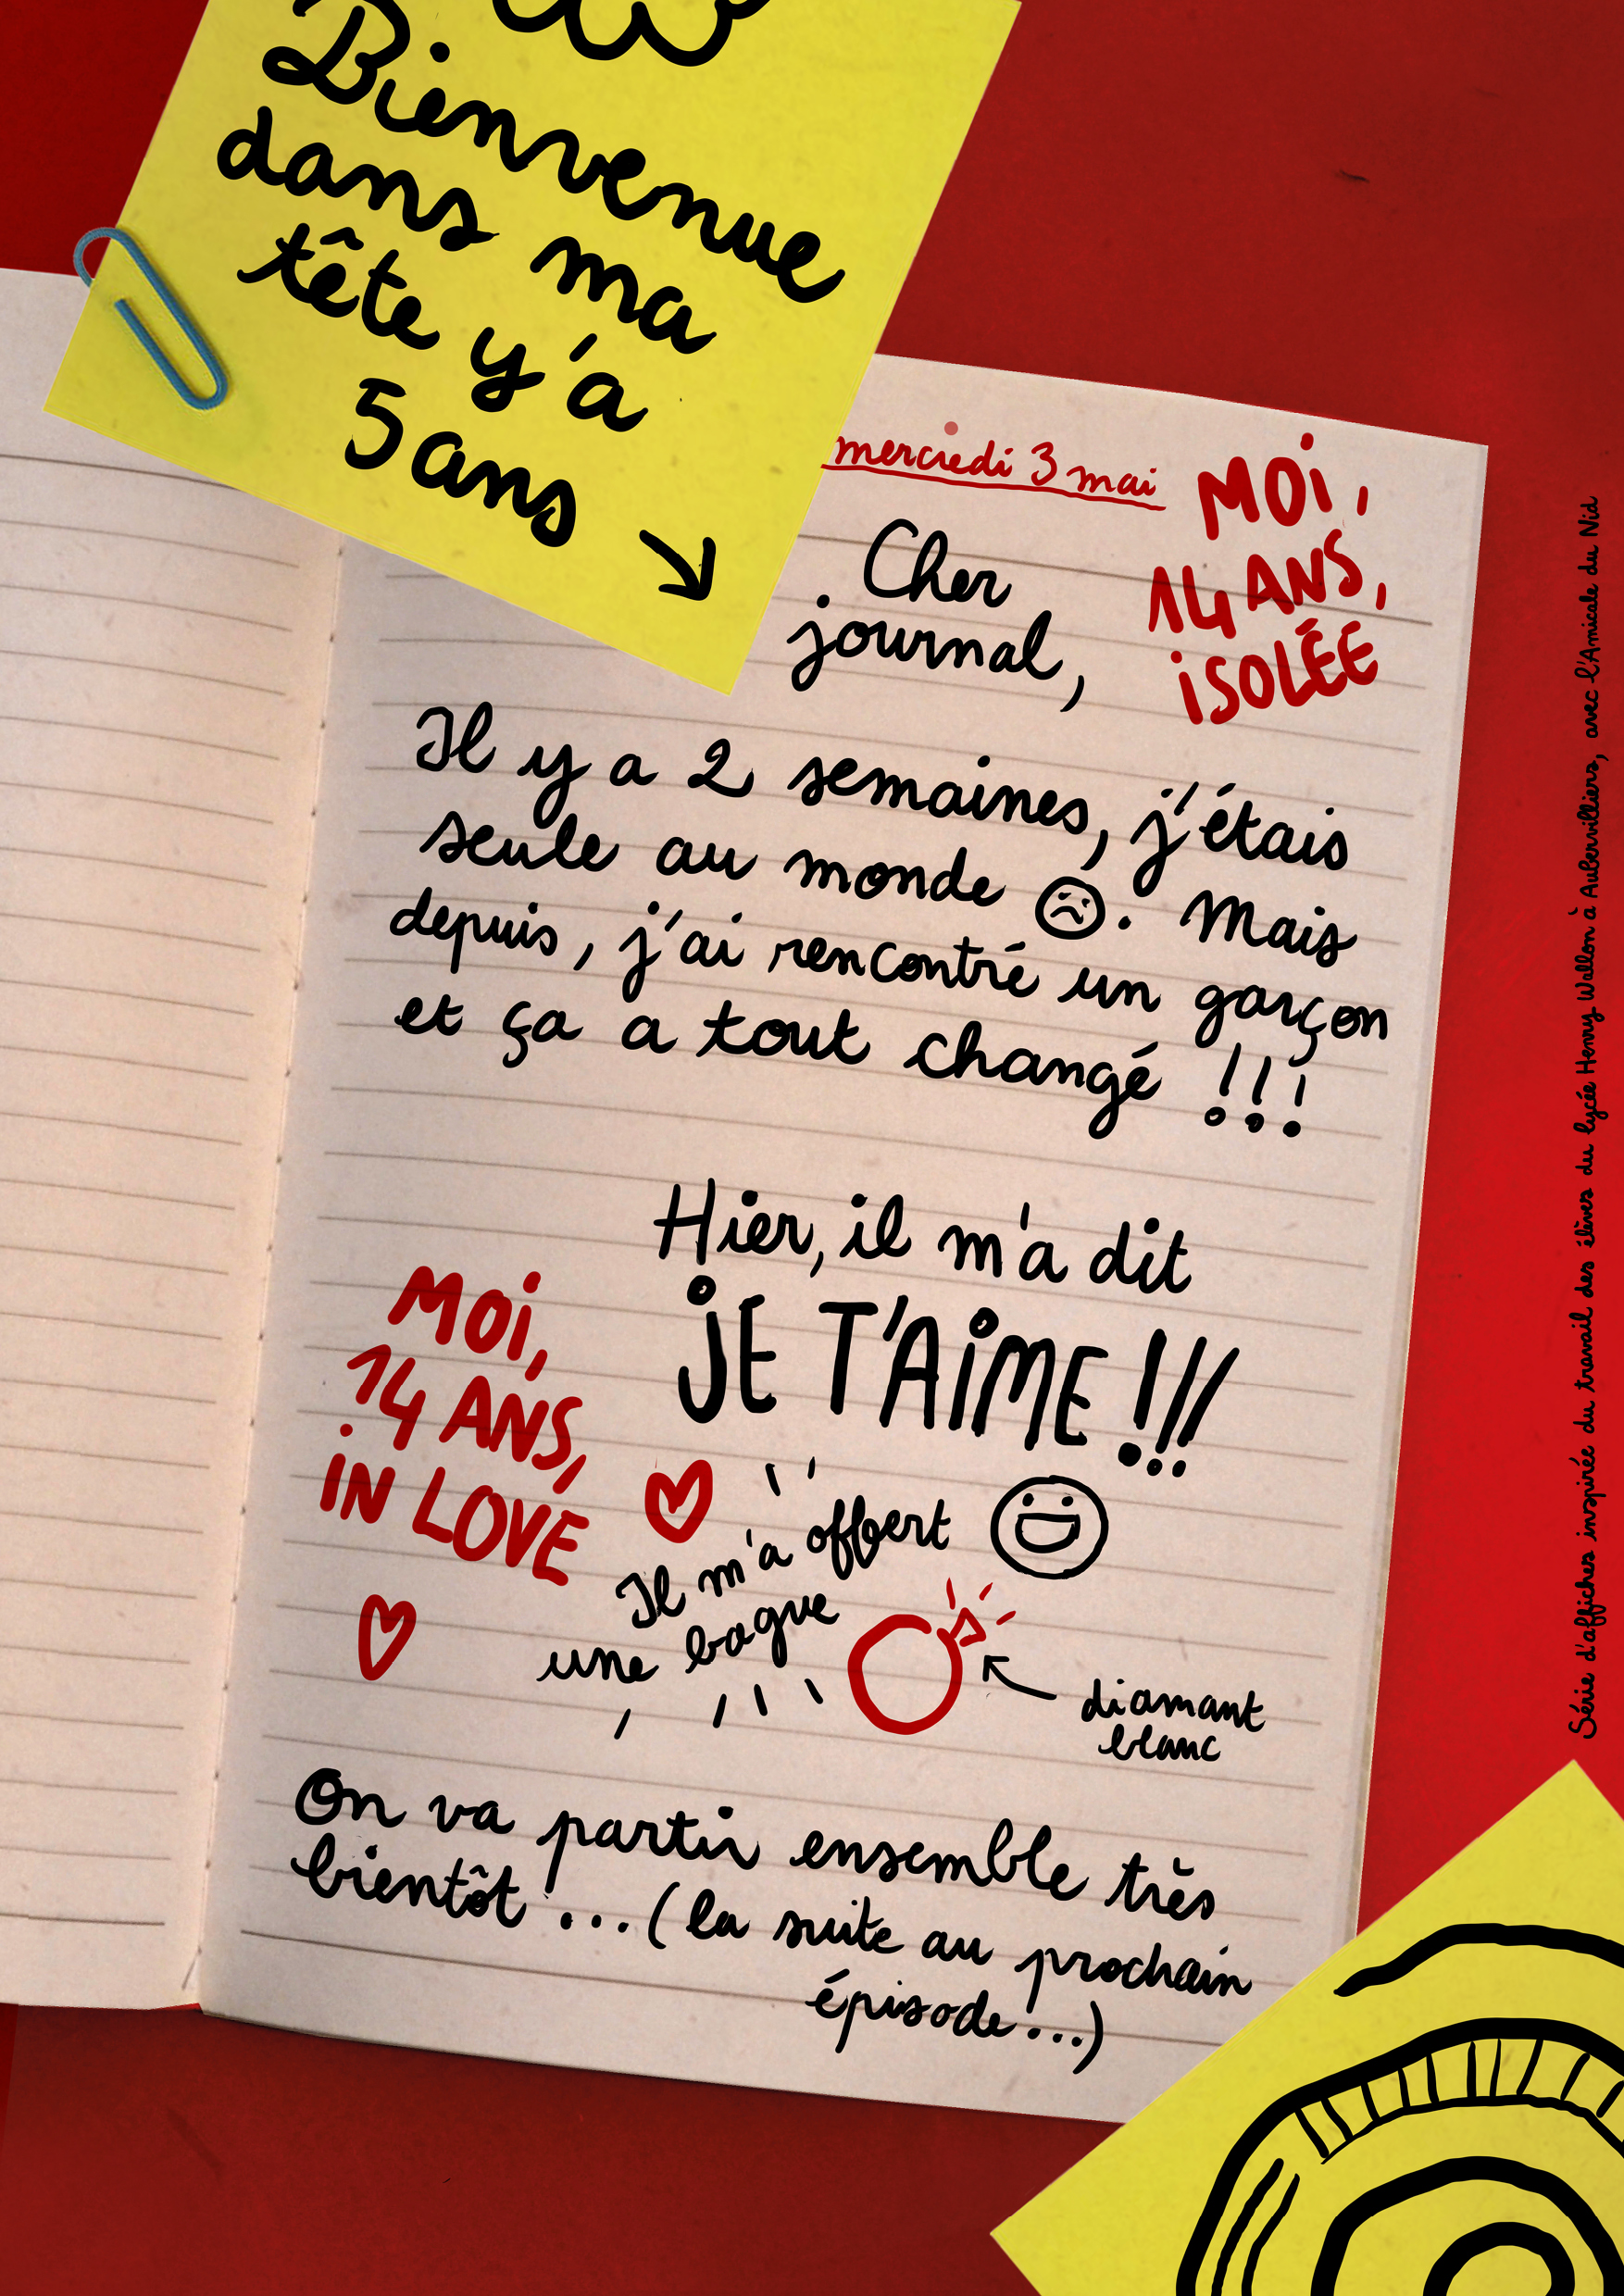 Bienvenue
dans ma
tête y'a
5 ans
mercredi 3 mai
MOI,
14 ANS,
ISOLÉE
Cher
journal,
Il y a 2 semaines, j'étais
seule au monde . Mais
depuis, j'ai rencontré un garçon
et ça a tout changé !!!
Hier, il m'a dit
JE T'AIME !!!
MOI,
14 ANS,
IN LOVE
Il m'a offert
une bague
diamant
blanc
On va partir ensemble très
bientôt ... (la suite au prochain
épisode...)
Série d'affiches inspirée du travail des élèves du lycée Henry Wallon à Aubervilliers, avec l'Amicale du Nid